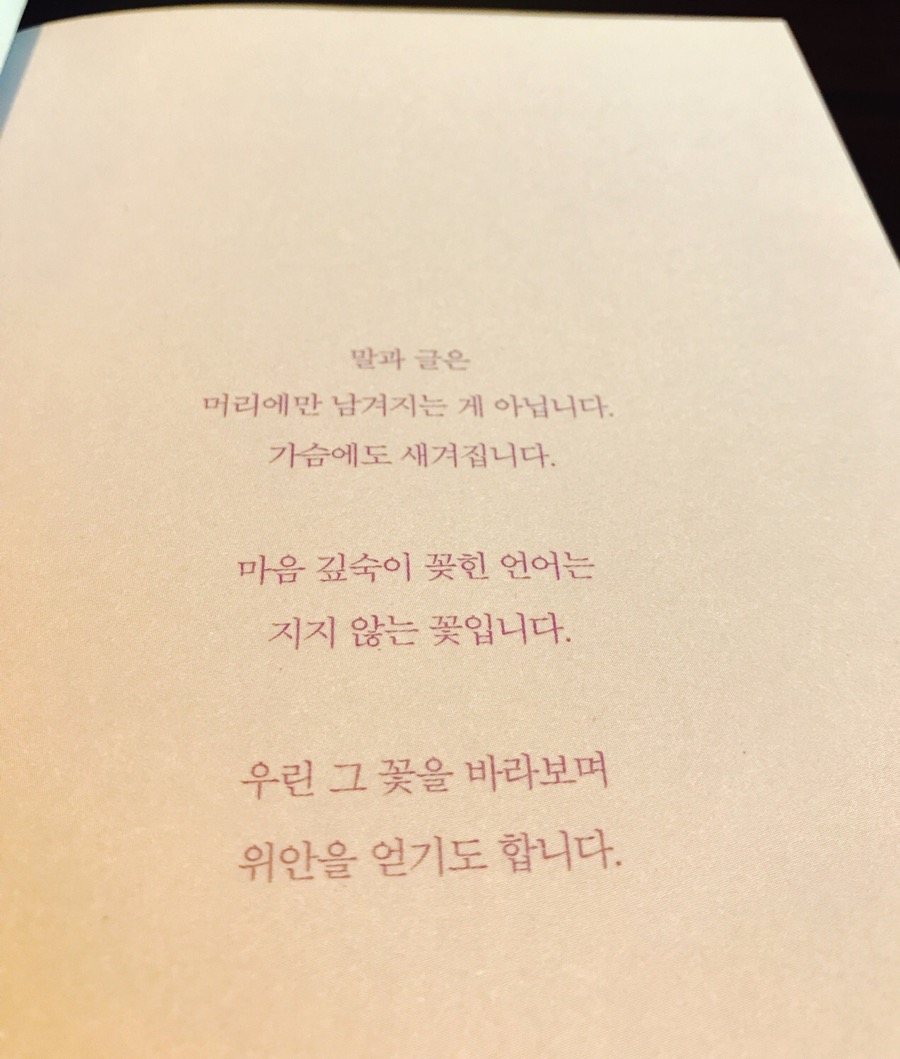 말과 글은
머리에만 남겨지는 게 아닙니다.
가슴에도 새겨집니다.
마음 깊숙이 꽂힌 언어는
지지 않는 꽃입니다.
우린 그 꽃을 바라보며
위안을 얻기도 합니다.